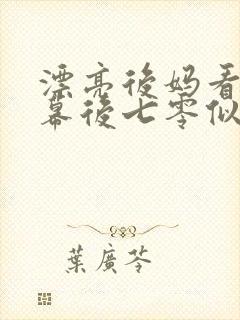 漂亮後妈看
幕後七零似
葉廣芩